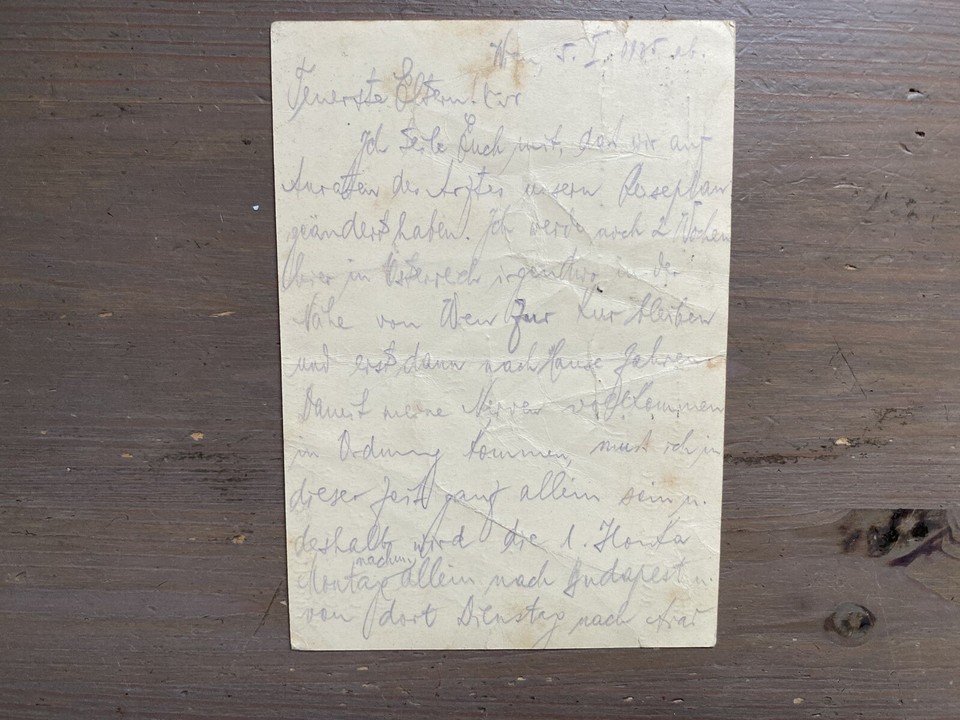 Wien, 5. I. 1925 ab.
Teuerste Eltern!
Ich teile Euch mit, daß wir auf
Anraten des Arztes unsern Reseplan
geändert haben. Ich werde noch 2 Wochen
hier in Österreich irgendwo in der
Nähe von Wien zur Kur bleiben
und erst dann nach Hause fahren
Damit meine Nerven vollkommen
in Ordnung kommen, muß ich in
dieser Zeit ganz allein sein u.
deshalb wird die l. Ilonka
Montag nachm. allein nach Budapest u.
von dort Dienstag nach Arad